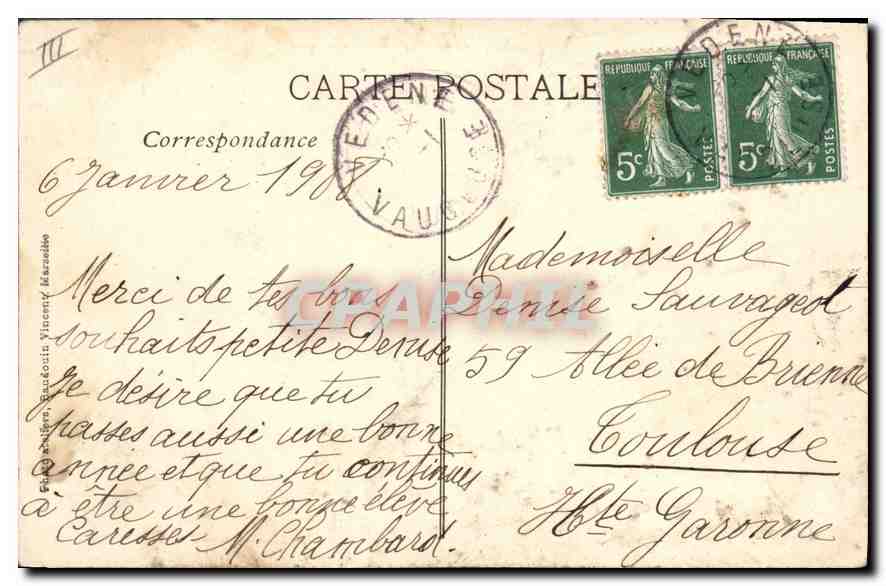 III
CARTE POSTALE
Correspondance
6 Janvier 1908
Merci de tes bons
souhaits petite Denise
Je désire que tu
passes aussi une bonne
année et que tu continues
à être une bonne élève
Caresses M. Chambard.
Mademoiselle
Denise Sauvageot
59 Allée de Brienne
Toulouse
Hte Garonne
VEDENE
VAUCLUSE
REPUBLIQUE FRANÇAISE
5c
POSTES
REPUBLIQUE FRANÇAISE
5c
POSTES
VEDENE
Baudouin Vincent, Marseille
CPAPHIL